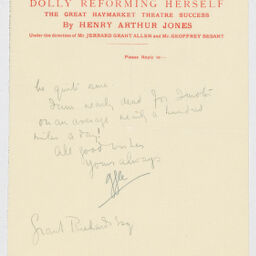 DOLLY REFORMING HERSELF
THE GREAT HAYMARKET THEATRE SUCCESS
By HENRY ARTHUR JONES
Under the direction of Mr JERRARD GRANT ALLEN and Mr GEOFFREY BESANT
Please Reply to
be quite sure
I am nearly dead for I motor
on an average nearly a hundred
miles a day!
All good wishes
Yours always
Grant Richards Esq